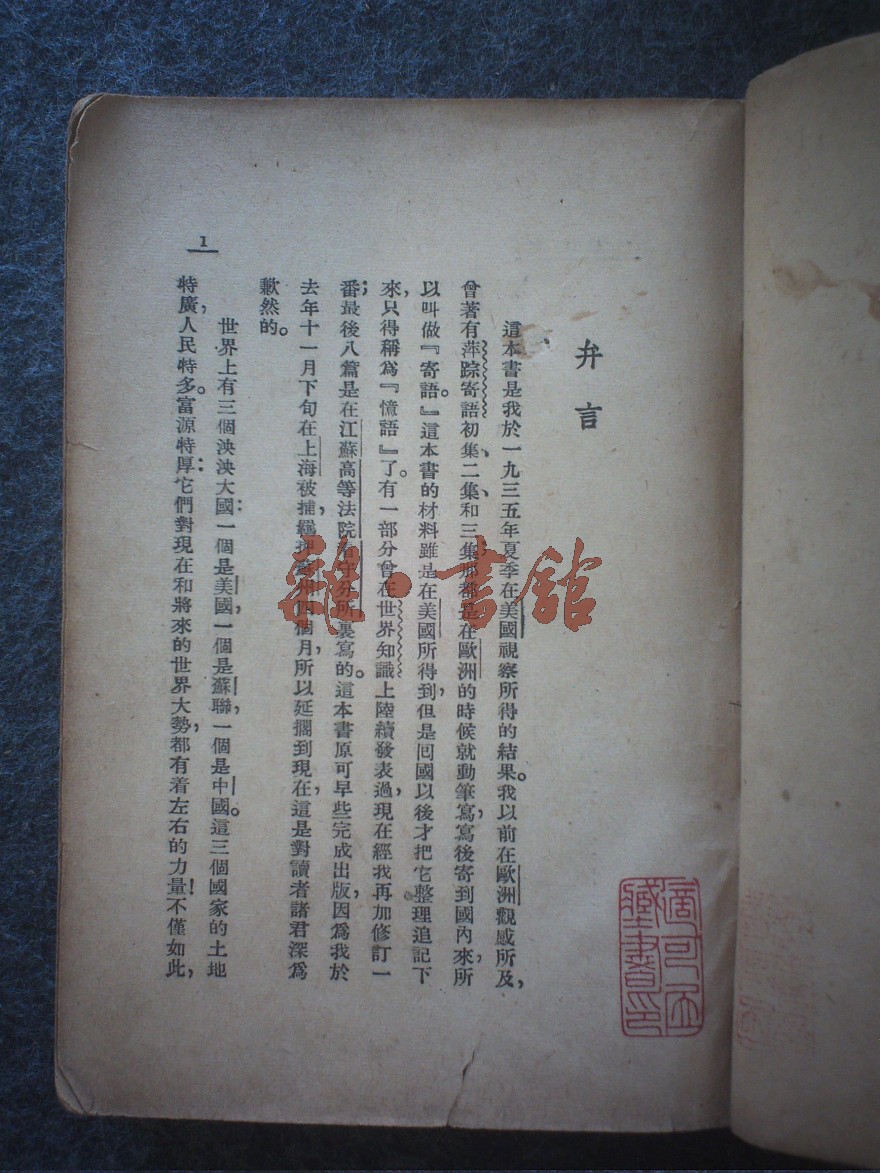 弁言
這本書是我於一九三五年夏季在美國視察所得的結果。我以前在歐洲觀感所及，
曾著有萍踪寄語初集、二集、和三集，那都是在歐洲的時候就動筆寫，寫後寄到國內來，所
以叫做『寄語。』這本書的材料雖是在美國所得到，但是回國以後才把它整理追記下
來，只得稱爲『憶語』了。有一部分曾在世界知識上陸續發表過，現在經我再加修訂一
番；最後八篇是在江蘇高等法院看守分所裏寫的。這本書原可早些完成出版，因爲我於
去年十一月下旬在上海被捕，羈押蘇州四個月，所以延擱到現在，這是對讀者諸君深爲
歉然的。
世界上有三個泱泱大國：一個是美國，一個是蘇聯，一個是中國。這三個國家的土地
特廣，人民特多。富源特厚：它們對現在和將來的世界大勢，都有着左右的力量！不僅如此，
1
雜·書館
藏書印